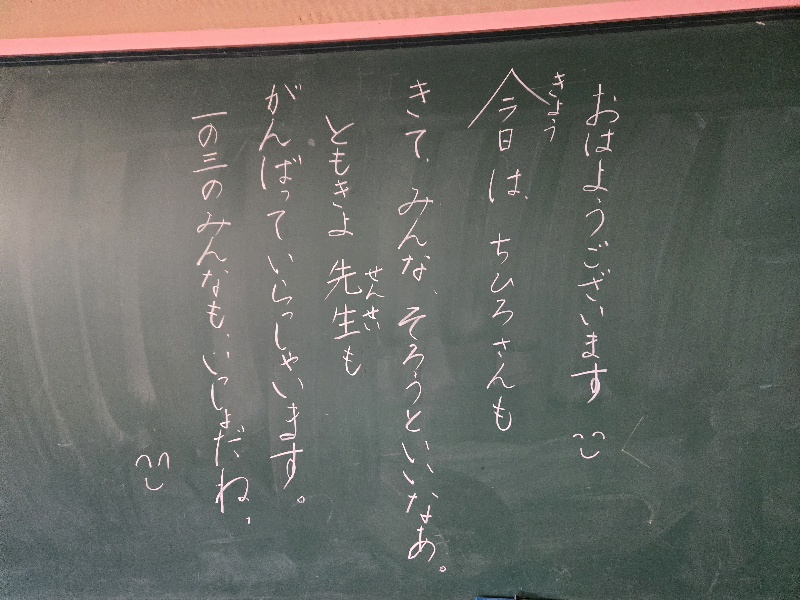 おはようございます
今日は、ちひろさんも
きょう
きて、みんな、そろうといいなあ。
ともきよ先生も
せんせい
がんばっていらっしゃいます。
一の三のみんなも、いっしょだね、